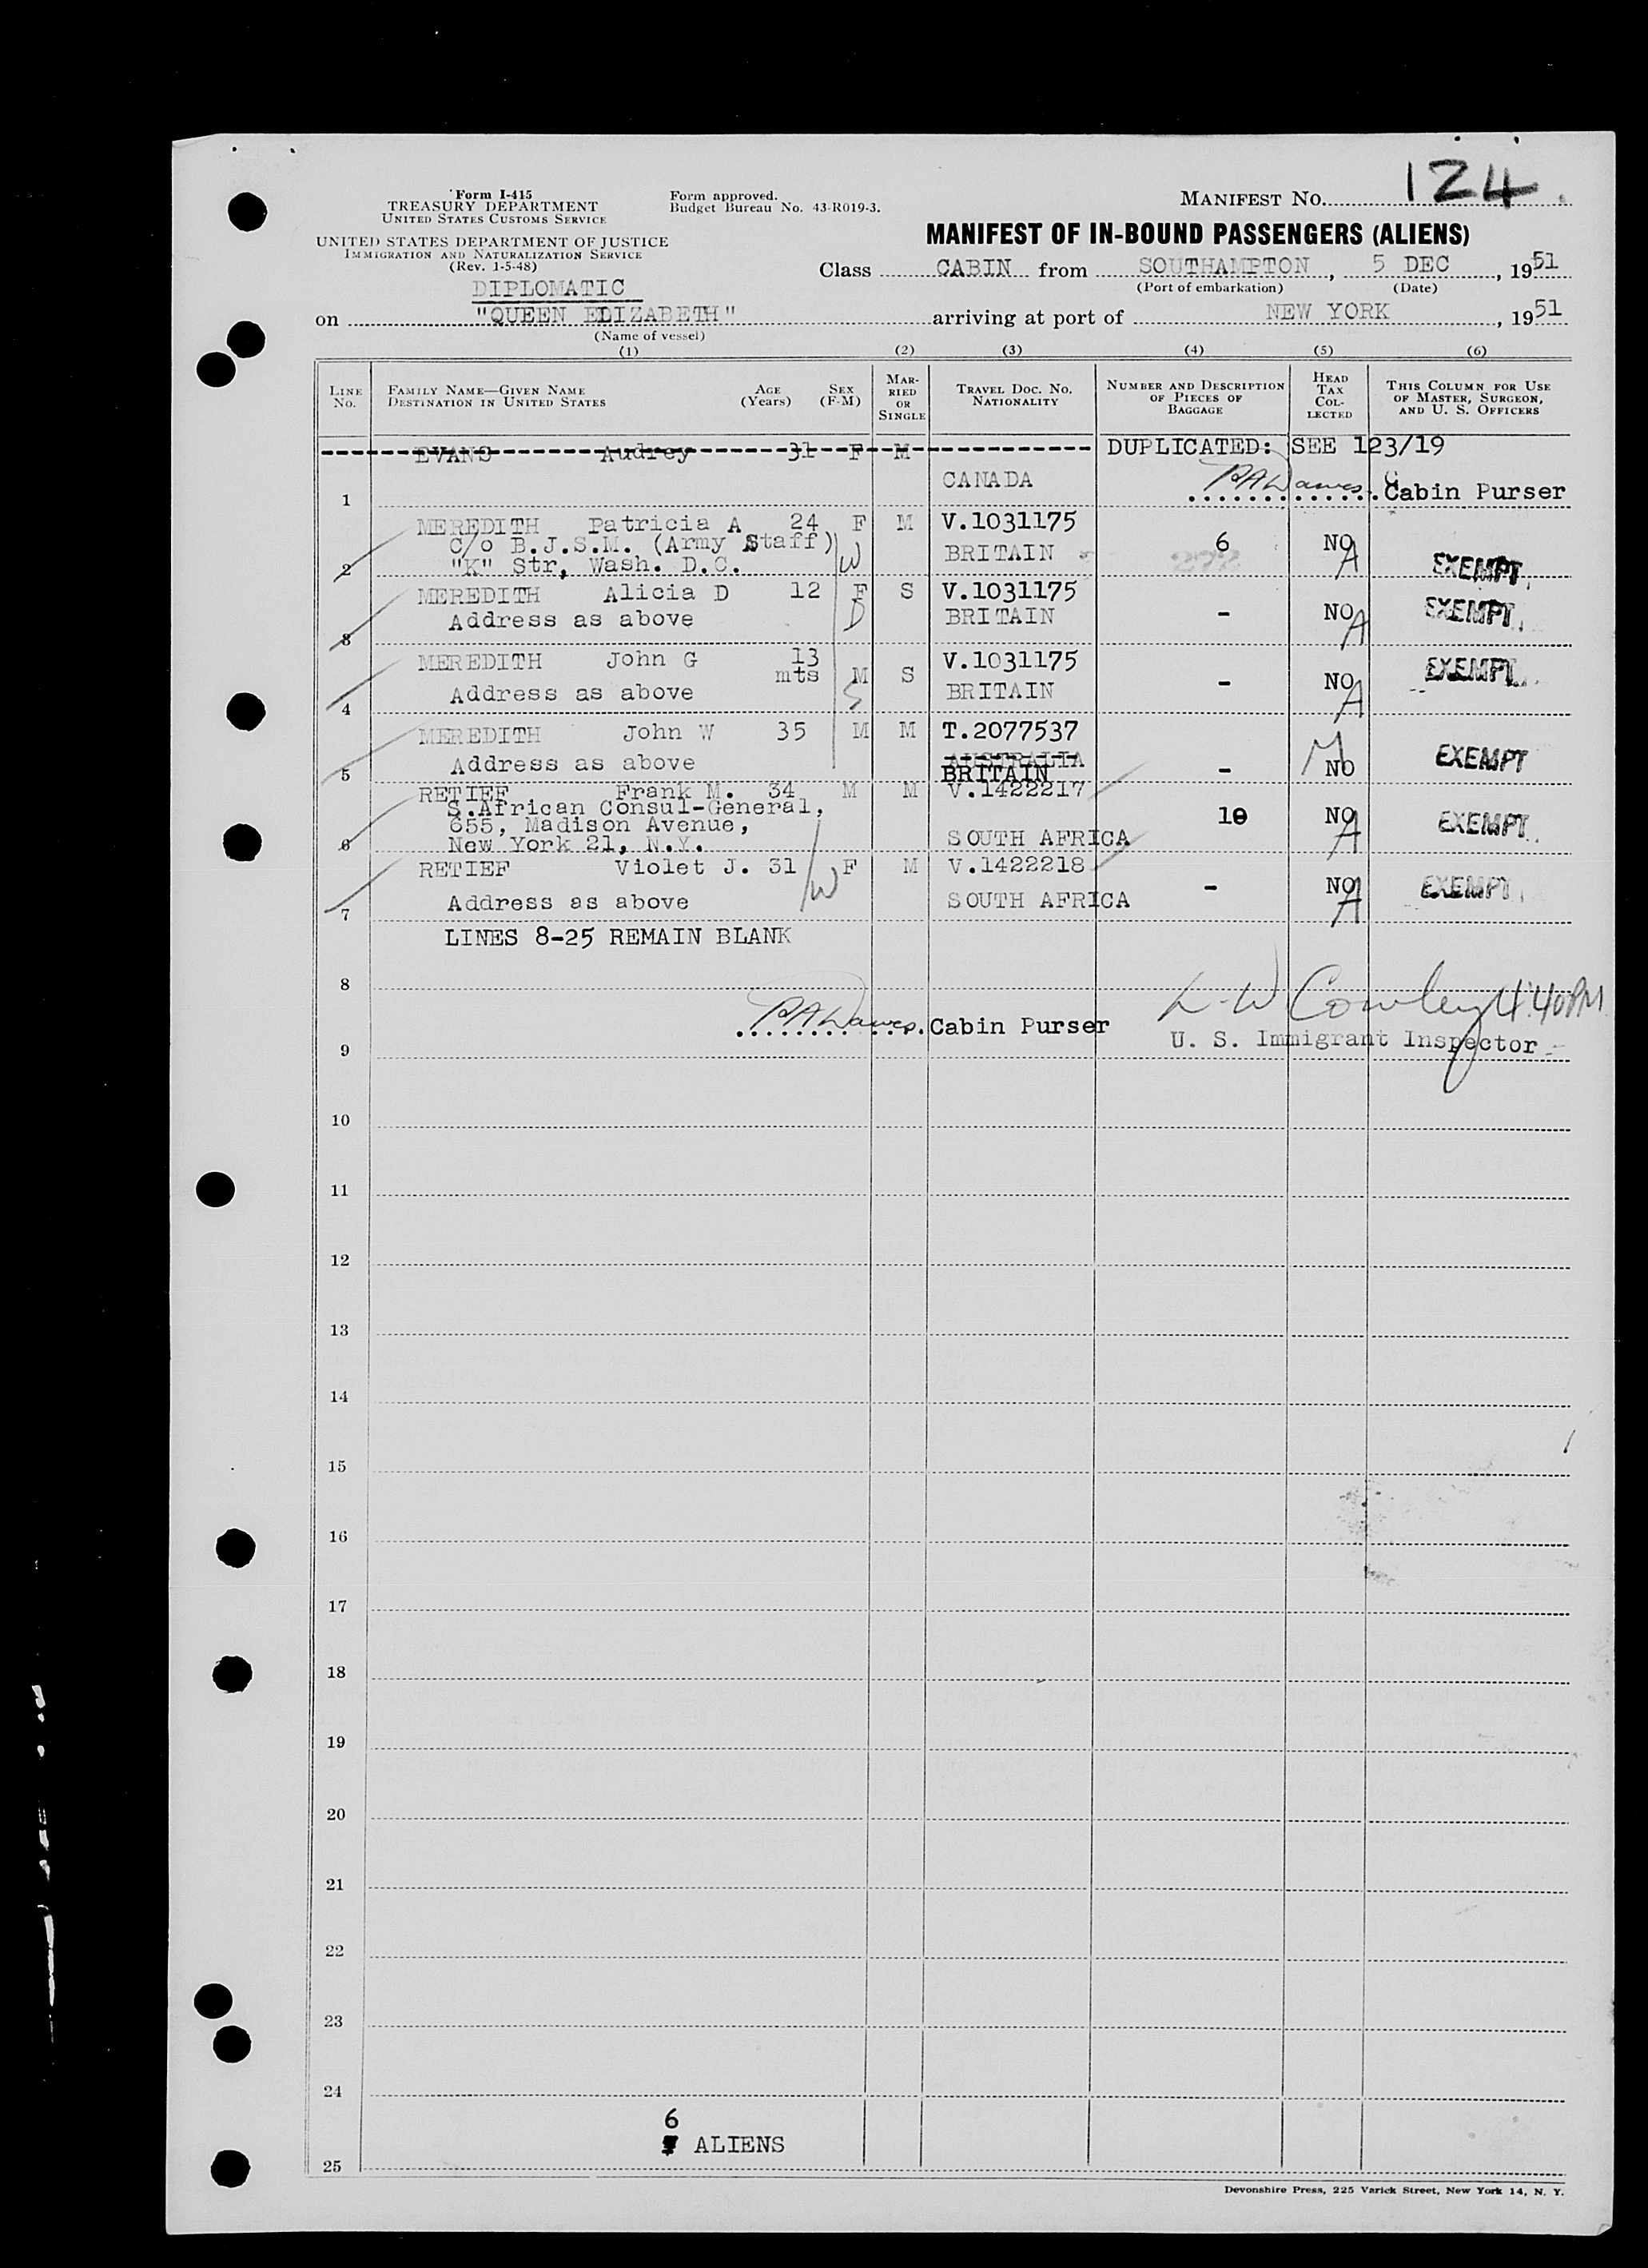 MANIFEST NO. 124
Form I-415
TREASURY DEPARTMENT
UNITED STATES CUSTOMS SERVICE
Form approved.
Budget Bureau No. 43-R019-3.
UNITED STATES DEPARTMENT OF JUSTICE
IMMIGRATION AND NATURALIZATION SERVICE
(Rev. 1-5-48)
MANIFEST OF IN-BOUND PASSENGERS (ALIENS)
Class CABIN from SOUTHAMPTON, 5 DEC, 1951
(Port of embarkation) (Date)
DIPLOMATIC
on "QUEEN ELIZABETH" arriving at port of NEW YORK, 1951
(Name of vessel)
(1) (2) (3) (4) (5) (6)
LINE No. FAMILY NAME—GIVEN NAME DESTINATION IN UNITED STATES AGE (Years) SEX (F-M) MARRIED OR SINGLE TRAVEL DOC. NO. NATIONALITY NUMBER AND DESCRIPTION OF PIECES OF BAGGAGE HEAD TAX COLLECTED THIS COLUMN FOR USE OF MASTER, SURGEON, AND U. S. OFFICERS
EVANS Audrey 31 F M DUPLICATED: SEE 123/19
CANADA
1 RA Dawes Cabin Purser
MEREDITH Patricia A 24 F M V.1031175
C/o B.J.S.M. (Army Staff) W BRITAIN 6 NO A
2 "K" Str, Wash. D.C. EXEMPT
MEREDITH Alicia D 12 F S V.1031175
Address as above D BRITAIN - NO A EXEMPT
3
MEREDITH John G 13 mts M S V.1031175
Address as above S BRITAIN - NO A EXEMPT
4
MEREDITH John W 35 M M T.2077537
AUSTRALIA
5 Address as above BRITAIN - NO EXEMPT
RETIEF Frank M. 34 M M V.1422217
S.African Consul-General,
655, Madison Avenue, 10 NO A EXEMPT
6 New York 21, N.Y. SOUTH AFRICA
RETIEF Violet J. 31 W F M V.1422218
7 Address as above SOUTH AFRICA - NO A EXEMPT
LINES 8-25 REMAIN BLANK
8
RA Dawes Cabin Purser L-W Cowley 4:40PM
9 U. S. Immigrant Inspector
10
11
12
13
14
15
16
17
18
19
20
21
22
23
24
6
ALIENS
25
Devonshire Press, 225 Varick Street, New York 14, N. Y.